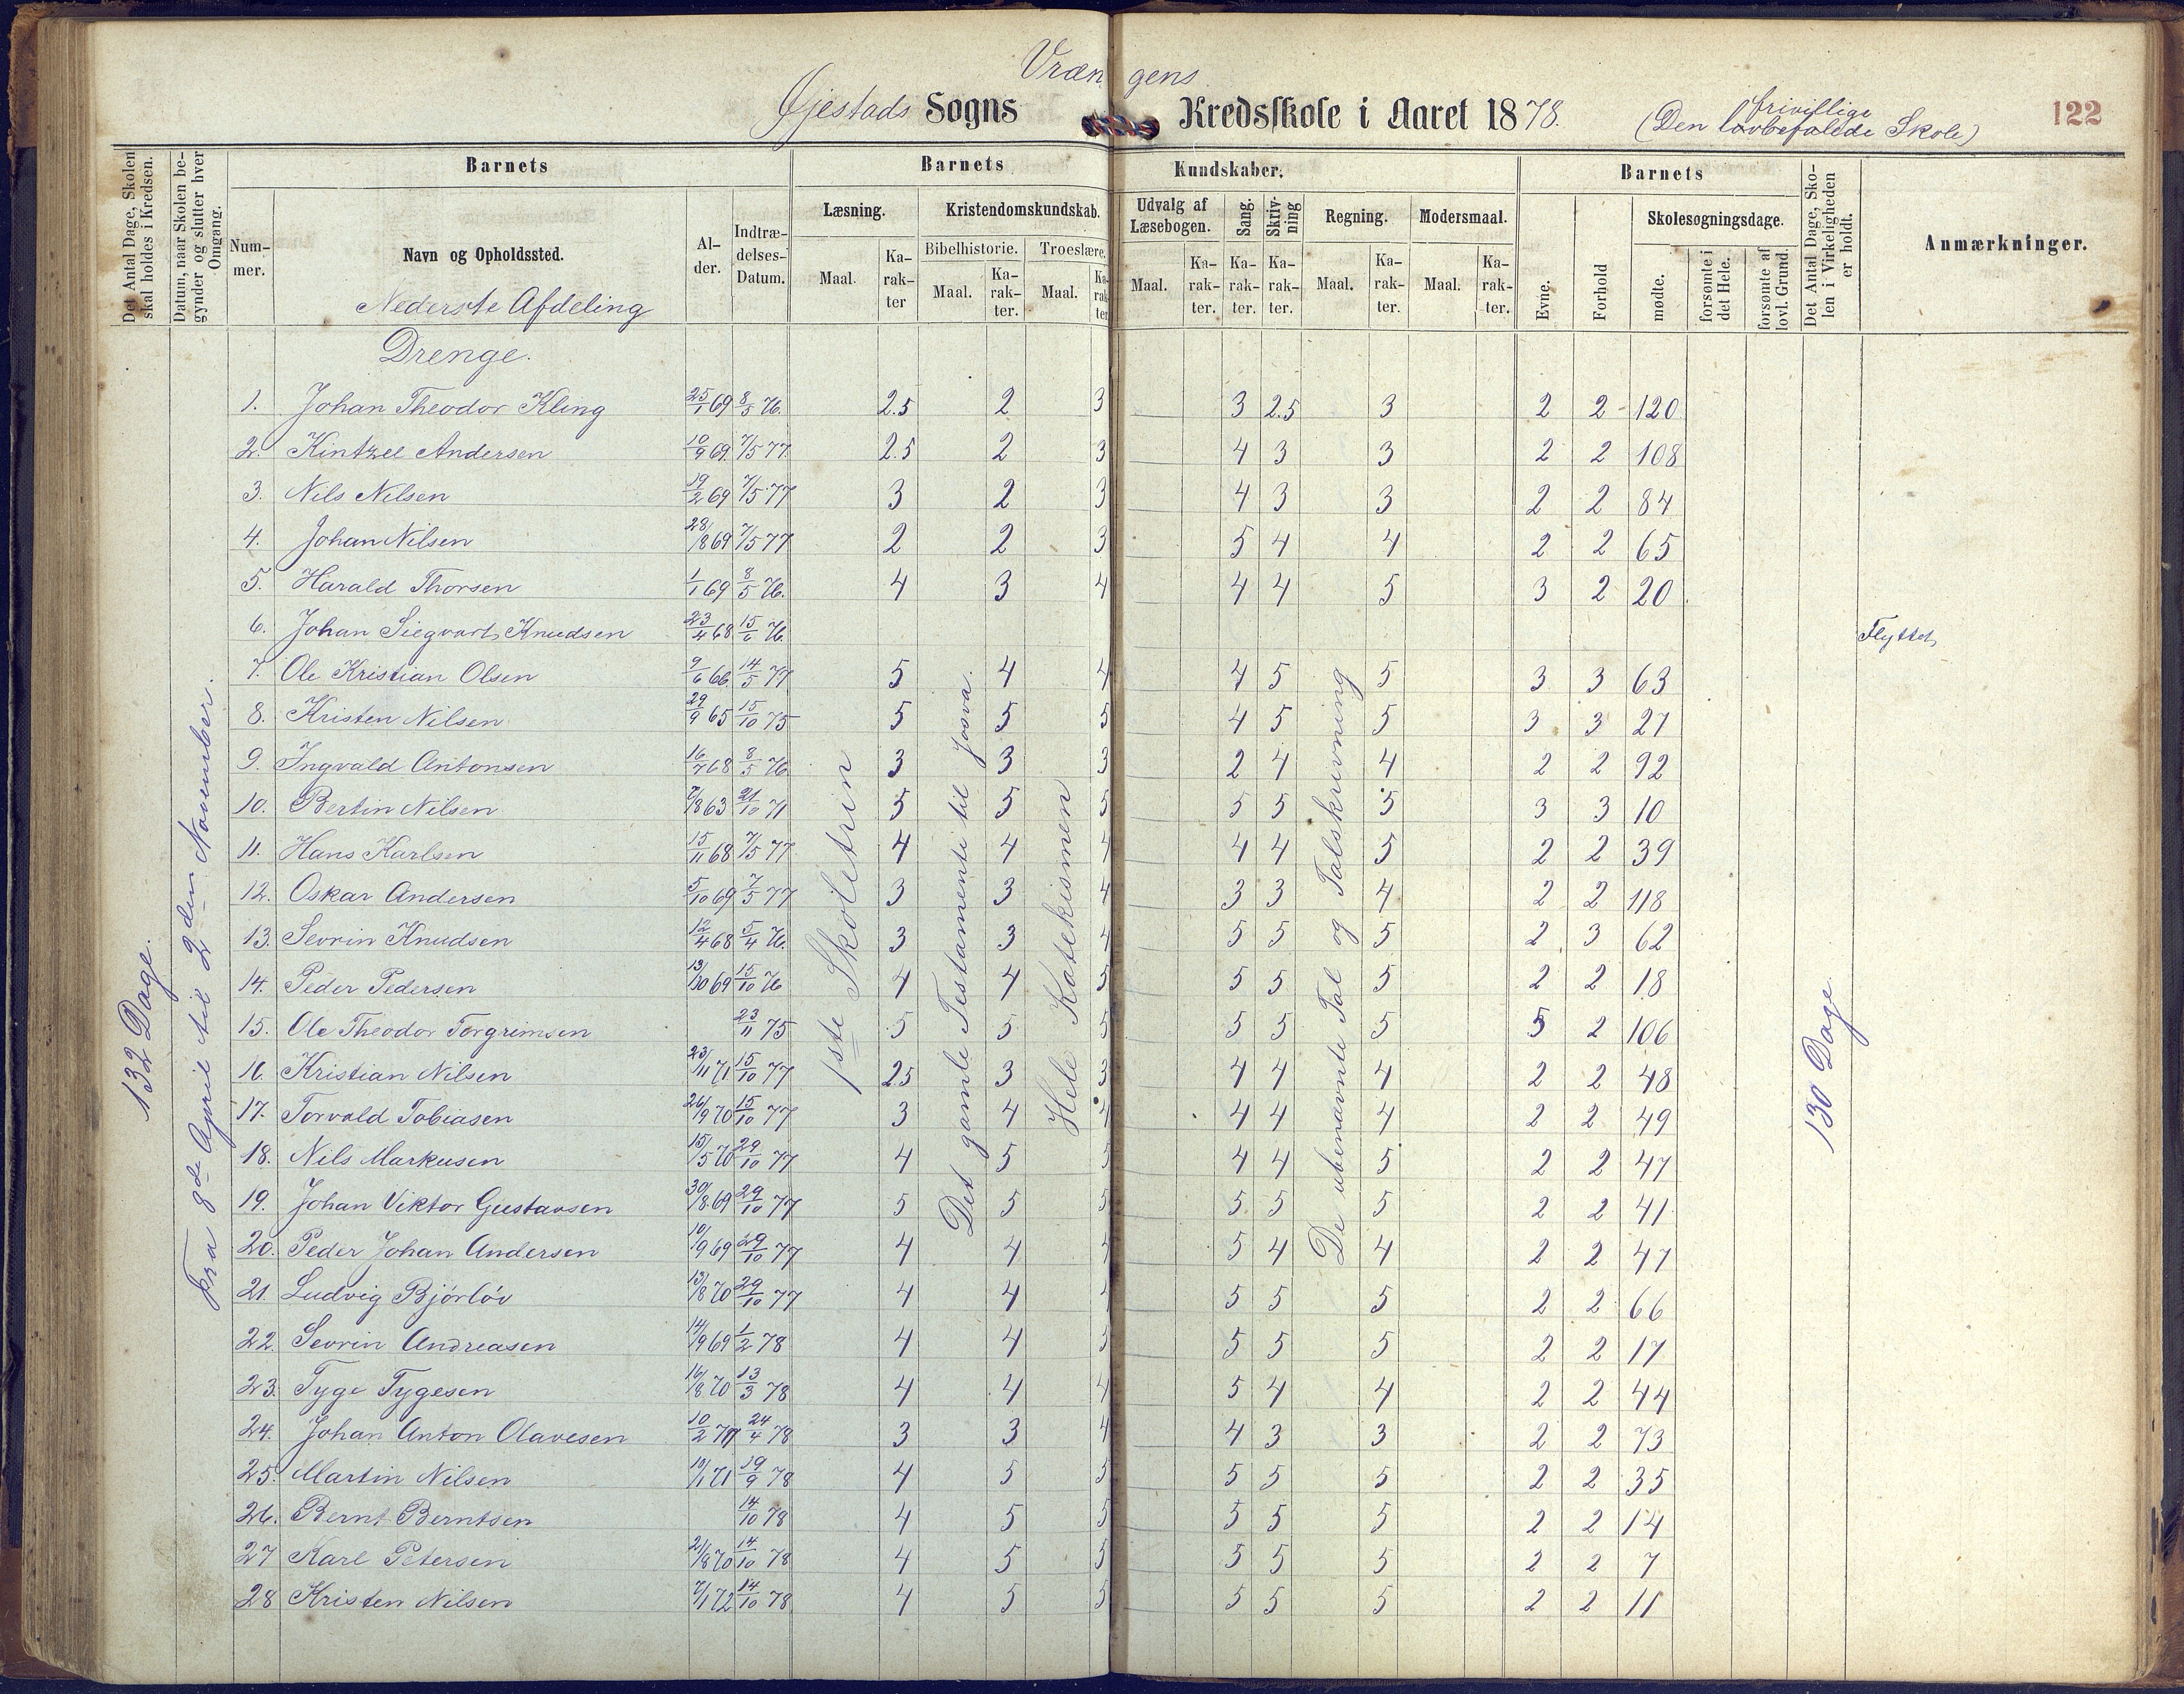 Vrængens
Øjestads Sogns Kredsskole i Aaret 1878. (Den frivillige lovbefalede Skole) 122
Det Antal Dage, Skolen skal holdes i Kredsen.
Datum, naar Skolen begynder og slutter hver Omgang.
Barnets
Barnets Kundskaber.
Barnets
Nummer.
Navn og Opholdssted.
Alder.
Indtrædelses-Datum.
Læsning.
Kristendomskundskab.
Udvalg af Læsebogen.
Sang.
Skrivning
Regning.
Modersmaal.
Evne.
Forhold
Skolesøgningsdage.
Det Antal Dage, Skolen i Virkeligheden er holdt.
Anmærkninger.
Bibelhistorie. Troeslære.
Maal. Karakter Maal. Karakter. Maal. Karakter Maal. Karakter. Karakter. Karakter. Maal. Karakter. Maal. Karakter.
mødte. forsømte i det Hele. forsømte af lovl. Grund.
Nederste Afdeling
Drenge.
132 Dage.
Fra 8de April til 2den November.
1ste Skoletrin
Det gamle Testamente til Josva.
Hele Katekismen
De ubenævnte Tal og Talskrivning
130 Dage
1. Johan Theodor Kling 25/1 69 8/5 76. 2.5 2 3 3 2.5 3 2 2 120
2. Kintzel Andersen 10/9 69. 7/5 77. 2.5 2 3 4 3 3 2 2 108
3. Nils Nilsen 19/2 69 7/5 77 3 2 3 4 3 3 2 2 84
4. Johan Nilsen 28/8 69 7/5 77 2 2 3 5 4 4 2 2 65
5. Harald Thorsen 1/1 69 8/5 76. 4 3 4 4 4 5 3 2 20
6. Johan Siegvart Knudsen 23/4 68 15/6 76. Flyttet
7. Ole Kristian Olsen 9/6 66. 14/5 77 5 4 4 4 5 5 3 3 63
8. Kristen Nilsen 29/9 65 15/10 75 5 5 5 4 5 5 3 3 27
9. Ingvald Antonsen 16/7 68 8/5 76 3 3 3 2 4 4 2 2 92
10. Bertin Nilsen 7/8 63 21/10 71 5 5 5 5 5 5 3 3 10
11. Hans Karlsen 15/11 68 7/5 77 4 4 4 4 4 5 2 2 39
12. Oskar Andersen 5/10 69 7/5 77 3 3 4 3 3 4 2 2 118
13. Sevrin Knudsen 12/4 68 5/4 76. 3 3 4 5 5 5 2 3 62
14. Peder Pedersen 13/10 69 15/10 76 4 4 5 5 5 5 2 2 18
15. Ole Theodor Torgrimsen 23/11 75 5 5 5 5 5 5 5 2 106
16. Kristian Nilsen 23/11 71 15/10 77 2.5 3 3 4 4 4 2 2 48
17. Torvald Tobiasen 26/9 70 15/10 77 3 4 4 4 4 4 2 2 49
18. Nils Markusen 15/5 70 29/10 77 4 5 5 4 4 5 2 2 47
19. Johan Viktor Gustavsen 30/8 69 29/10 77 5 5 5 5 5 5 2 2 41
20. Peder Johan Andersen 10/9 69 29/10 77 4 4 4 5 4 4 2 2 47
21. Ludvig Bjørløv 13/8 70 29/10 77 4 4 4 5 5 5 2 2 66
22. Sevrin Andreasen 14/9 69 1/2 78 4 4 5 5 5 5 2 2 17
23. Tyge Tygesen 16/8 70 13/3 78 4 4 4 5 4 4 2 2 44
24. Johan Anton Olavesen 10/2 71 24/4 78 3 3 4 4 3 3 2 2 73
25. Martin Nilsen 10/1 71 19/9 78 4 5 5 5 5 5 2 2 35
26. Bernt Berntsen 14/10 78 4 5 5 5 5 5 2 2 14
27 Karl Petersen 21/8 70 14/10 78 4 5 5 5 5 5 2 2 7
28 Kristen Nilsen 7/1 72 14/10 78 4 5 5 5 5 5 2 2 11